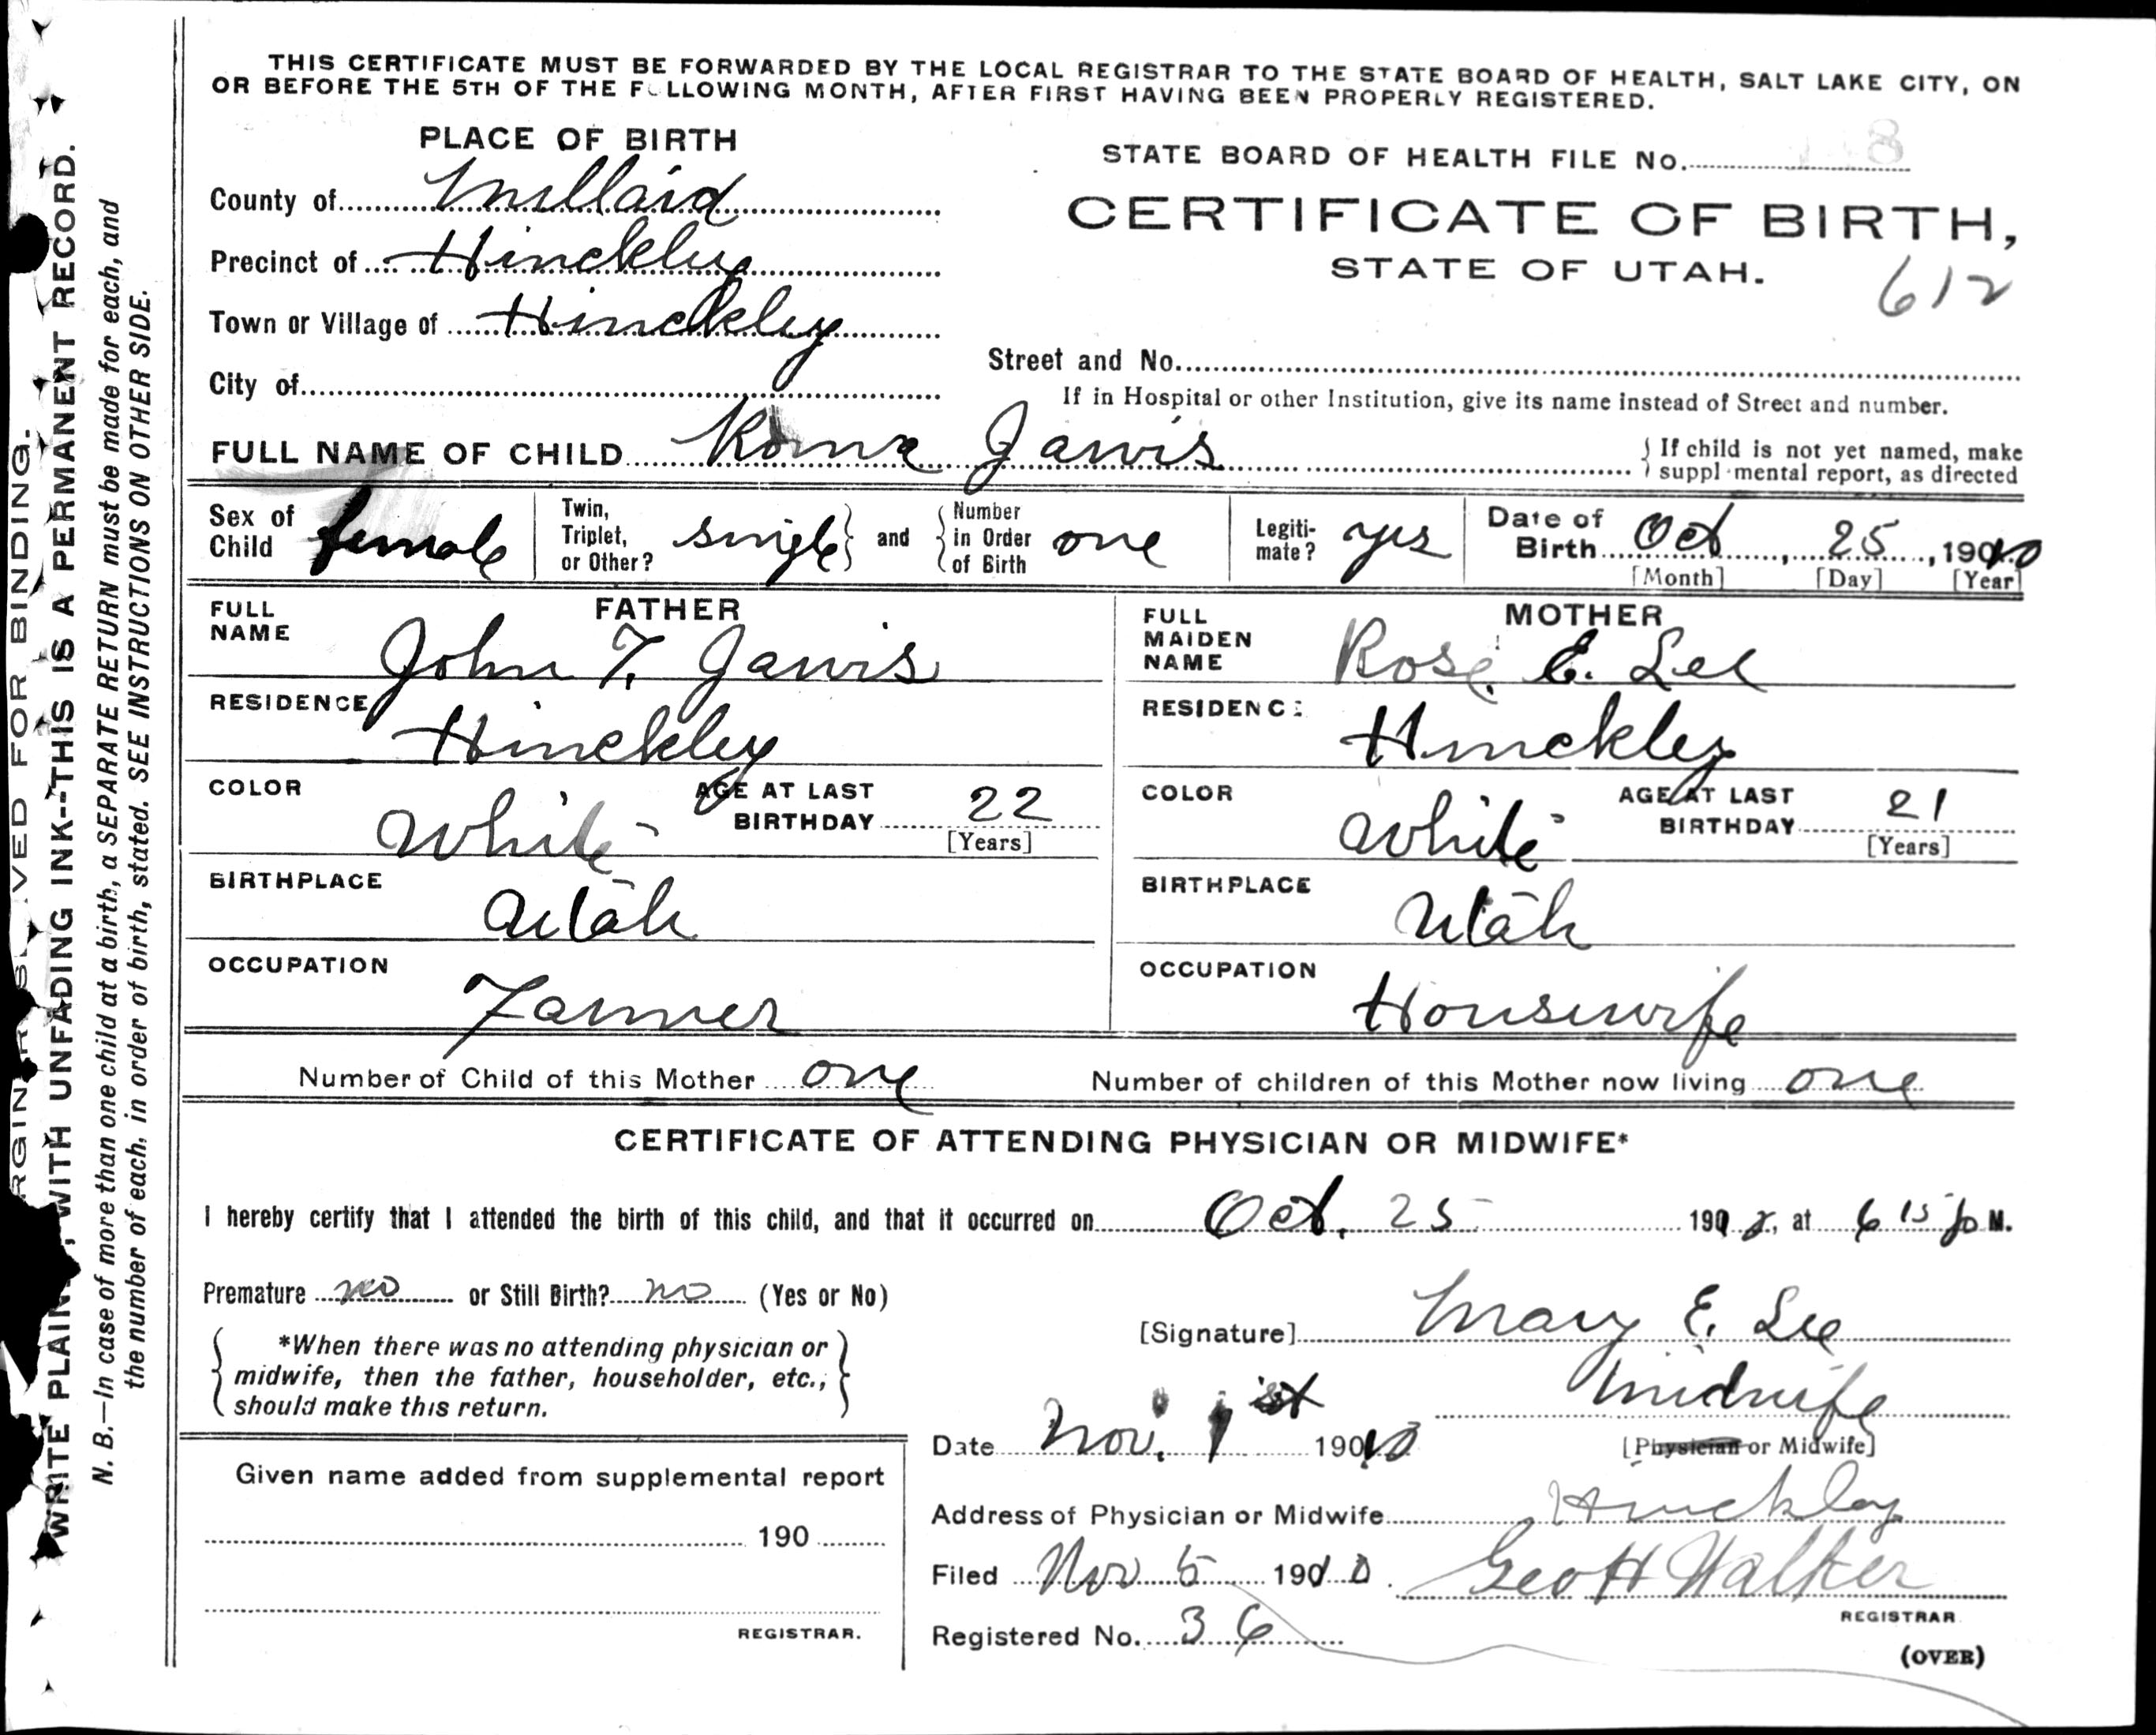 THIS CERTIFICATE MUST BE FORWARDED BY THE LOCAL REGISTRAR TO THE STATE BOARD OF HEALTH, SALT LAKE CITY, ON
OR BEFORE THE 5TH OF THE F LLOWING MONTH, AFTER FIRST HAVING BEEN PROPERLY REGISTERED.
PLACE OF BIRTH
County of Millard
Precinct of Hinckley
Town or Village of Hinckley
City of
STATE BOARD OF HEALTH FILE No. 8
CERTIFICATE OF BIRTH,
STATE OF UTAH.
612
Street and No.
If in Hospital or other Institution, give its name instead of Street and number.
FULL NAME OF CHILD Roma Jarvis
If child is not yet named, make
suppl mental report, as directed
Sex of Child female
Twin, Triplet, or Other? single and Number in Order of Birth one
Legiti- mate? yes
Date of Birth Oct 25, 1910
[Month] [Day] [Year]
FATHER
FULL NAME John F. Jarvis
RESIDENCE Hinckley
COLOR White AGE AT LAST BIRTHDAY 22
[Years]
BIRTHPLACE Utah
OCCUPATION Farmer
MOTHER
FULL MAIDEN NAME Rose E. Lee
RESIDENC: Hinckley
COLOR White AGE AT LAST BIRTHDAY 21
[Years]
BIRTHPLACE Utah
OCCUPATION Housewife
Number of Child of this Mother one Number of children of this Mother now living one
CERTIFICATE OF ATTENDING PHYSICIAN OR MIDWIFE*
I hereby certify that I attended the birth of this child, and that it occurred on Oct. 25 190, at 6 15 p M.
Premature no or Still Birth? no (Yes or No)
*When there was no attending physician or
midwife, then the father, householder, etc.,
should make this return.
[Signature] Mary E. Lee
Midwife
[Physician or Midwife]
Date Nov. 1st 1910
Address of Physician or Midwife Hinckley
Filed Nov 5 1910. Geo H Walker
REGISTRAR
Registered No. 36
(OVER)
Given name added from supplemental report
190
REGISTRAR.
VED FOR BINDING.
WRITE PLAIN , WITH UNFADING INK--THIS IS A PERMANENT RECORD.
N. B.—In case of more than one child at a birth, a SEPARATE RETURN must be made for each, and
the number of each, in order of birth, stated. SEE INSTRUCTIONS ON OTHER SIDE.